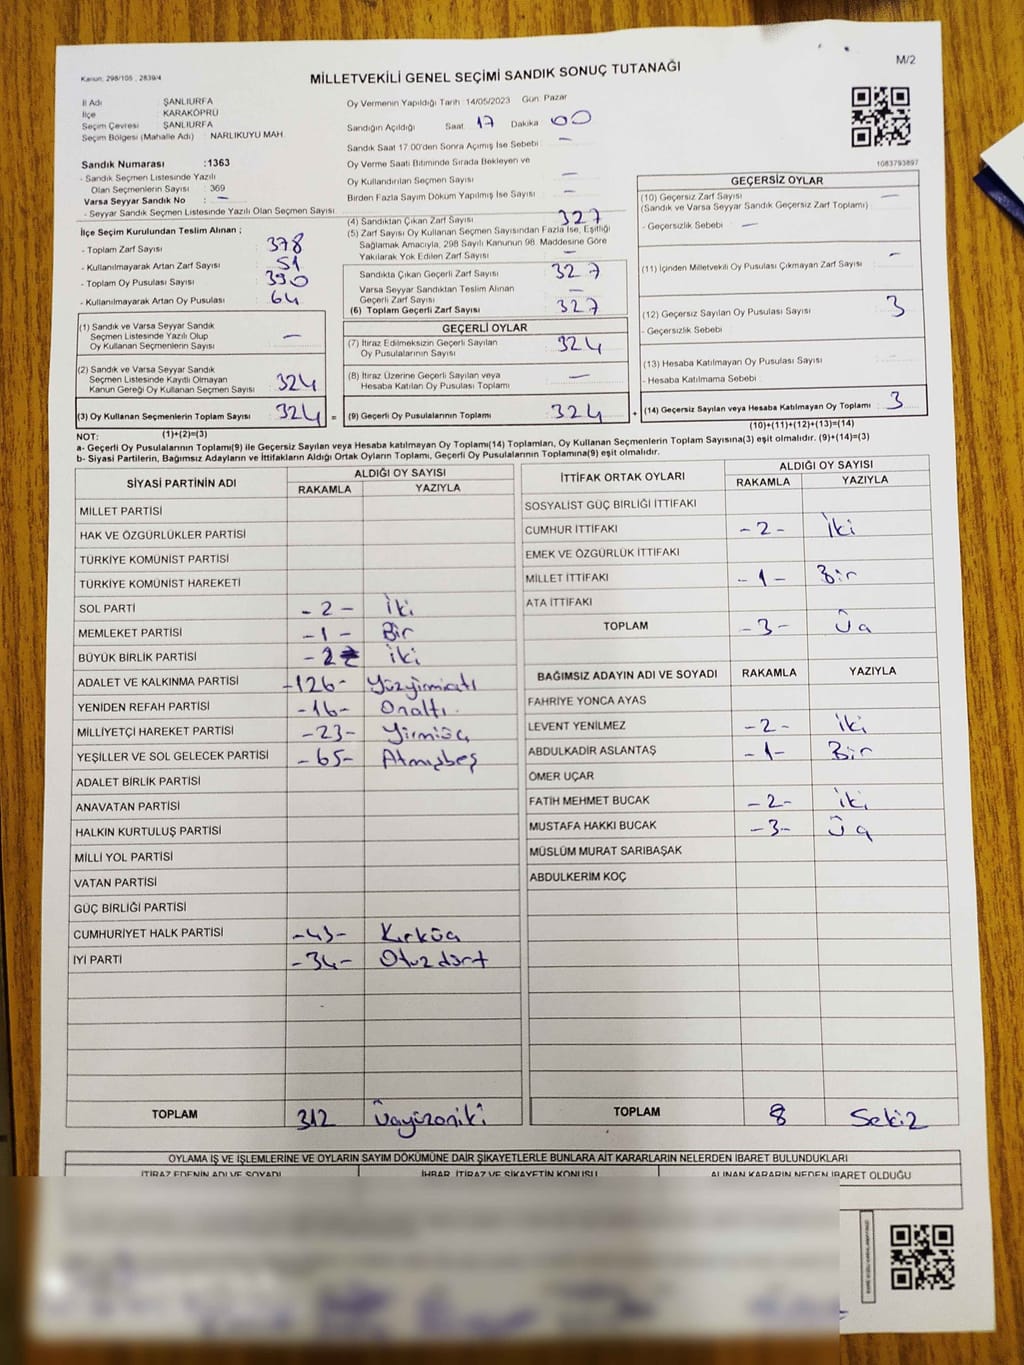 Kanun: 298/105 , 2839/4
MİLLETVEKİLİ GENEL SEÇİMİ SANDIK SONUÇ TUTANAĞI
M/2
İl Adı : ŞANLIURFA
İlçe : KARAKÖPRÜ
Seçim Çevresi : ŞANLIURFA
Seçim Bölgesi (Mahalle Adı) : NARLIKUYU MAH.
Sandık Numarası :1363
- Sandık Seçmen Listesinde Yazılı
Olan Seçmenlerin Sayısı : 369
Varsa Seyyar Sandık No —
- Seyyar Sandık Seçmen Listesinde Yazılı Olan Seçmen Sayısı
İlçe Seçim Kurulundan Teslim Alınan ;
- Toplam Zarf Sayısı : 378
- Kullanılmayarak Artan Zarf Sayısı : 51
- Toplam Oy Pusulası Sayısı : 390
- Kullanılmayarak Artan Oy Pusulası : 64
(1) Sandık ve Varsa Seyyar Sandık
Seçmen Listesinde Yazılı Olup
Oy Kullanan Seçmenlerin Sayısı : —
(2) Sandık ve Varsa Seyyar Sandık
Seçmen Listesinde Kayıtlı Olmayan
Kanun Gereği Oy Kullanan Seçmen Sayısı : 324
(3) Oy Kullanan Seçmenlerin Toplam Sayısı : 324 =
(1)+(2)=(3)
Oy Vermenin Yapıldığı Tarih 14/05/2023 Gün Pazar
Sandığın Açıldığı Saat 17 Dakika 00
Sandık Saat 17.00'den Sonra Açımış İse Sebebi —
Oy Verme Saati Bitiminde Sırada Bekleyen ve
Oy Kullandırılan Seçmen Sayısı —
Birden Fazla Sayım Döküm Yapılmış İse Sayısı —
(4) Sandıktan Çıkan Zarf Sayısı 327
(5) Zarf Sayısı Oy Kullanan Seçmen Sayısından Fazla İse, Eşitliği
Sağlamak Amacıyla, 298 Sayılı Kanunun 98. Maddesine Göre
Yakılarak Yok Edilen Zarf Sayısı —
Sandıkta Çıkan Geçerli Zarf Sayısı 327
Varsa Seyyar Sandıktan Teslim Alınan
Geçerli Zarf Sayısı —
(6) Toplam Geçerli Zarf Sayısı 327
GEÇERLİ OYLAR
(7) İtiraz Edilmeksizin Geçerli Sayılan
Oy Pusulalarının Sayısı 324
(8) İtiraz Üzerine Geçerli Sayılan veya
Hesaba Katılan Oy Pusulası Toplamı —
(9) Geçerli Oy Pusulalarının Toplamı 324 +
1083793897
GEÇERSİZ OYLAR
(10) Geçersiz Zarf Sayısı —
(Sandık ve Varsa Seyyar Sandık Geçersiz Zarf Toplamı)
- Geçersizlik Sebebi : —
(11) İçinden Milletvekili Oy Pusulası Çıkmayan Zarf Sayısı —
(12) Geçersiz Sayılan Oy Pusulası Sayısı 3
- Geçersizlik Sebebi :
(13) Hesaba Katılmayan Oy Pusulası Sayısı
- Hesaba Katılmama Sebebi :
(14) Geçersiz Sayılan veya Hesaba Katılmayan Oy Toplamı 3
(10)+(11)+(12)+(13)=(14)
NOT:
a- Geçerli Oy Pusulalarının Toplamı(9) ile Geçersiz Sayılan veya Hesaba katılmayan Oy Toplamı(14) Toplamları, Oy Kullanan Seçmenlerin Toplam Sayısına(3) eşit olmalıdır. (9)+(14)=(3)
b- Siyasi Partilerin, Bağımsız Adayların ve İttifakların Aldığı Ortak Oyların Toplamı, Geçerli Oy Pusulalarının Toplamına(9) eşit olmalıdır.
SİYASİ PARTİNİN ADI ALDIĞI OY SAYISI
RAKAMLA YAZIYLA
MİLLET PARTİSİ
HAK VE ÖZGÜRLÜKLER PARTİSİ
TÜRKİYE KOMÜNİST PARTİSİ
TÜRKİYE KOMÜNİST HAREKETİ
SOL PARTİ -2- İki
MEMLEKET PARTİSİ -1- Bir
BÜYÜK BİRLİK PARTİSİ -2 iki
ADALET VE KALKINMA PARTİSİ -126- Yüzyirmialtı
YENİDEN REFAH PARTİSİ -16- Onaltı.
MİLLİYETÇİ HAREKET PARTİSİ -23- Yirmiüç
YEŞİLLER VE SOL GELECEK PARTİSİ -65- Atmışbeş
ADALET BİRLİK PARTİSİ
ANAVATAN PARTİSİ
HALKIN KURTULUŞ PARTİSİ
MİLLİ YOL PARTİSİ
VATAN PARTİSİ
GÜÇ BİRLİĞİ PARTİSİ
CUMHURİYET HALK PARTİSİ -43- Kırküç
İYİ PARTİ -34- Otuzdört
TOPLAM 312 Üçyüzoniki
İTTİFAK ORTAK OYLARI ALDIĞI OY SAYISI
RAKAMLA YAZIYLA
SOSYALİST GÜÇ BİRLİĞİ İTTİFAKI
CUMHUR İTTİFAKI -2- İki
EMEK VE ÖZGÜRLÜK İTTİFAKI
MİLLET İTTİFAKI -1- Bir
ATA İTTİFAKI
TOPLAM -3- Üç
BAĞIMSIZ ADAYIN ADI VE SOYADI RAKAMLA YAZIYLA
FAHRİYE YONCA AYAS
LEVENT YENİLMEZ -2- iki
ABDULKADİR ASLANTAŞ -1- Bir
ÖMER UÇAR
FATİH MEHMET BUCAK -2- iki
MUSTAFA HAKKI BUCAK -3- Üç
MÜSLÜM MURAT SARIBAŞAK
ABDULKERİM KOÇ
TOPLAM 8 Sekiz
OYLAMA İŞ VE İŞLEMLERİNE VE OYLARIN SAYIM DÖKÜMÜNE DAİR ŞİKAYETLERLE BUNLARA AİT KARARLARIN NELERDEN İBARET BULUNDUKLARI
İTİRAZ EDENİN ADI VE SOYADI İHBAR, İTİRAZ VE ŞİKAYETİN KONUSU ALINAN KARARIN NEDEN İBARET OLDUĞU